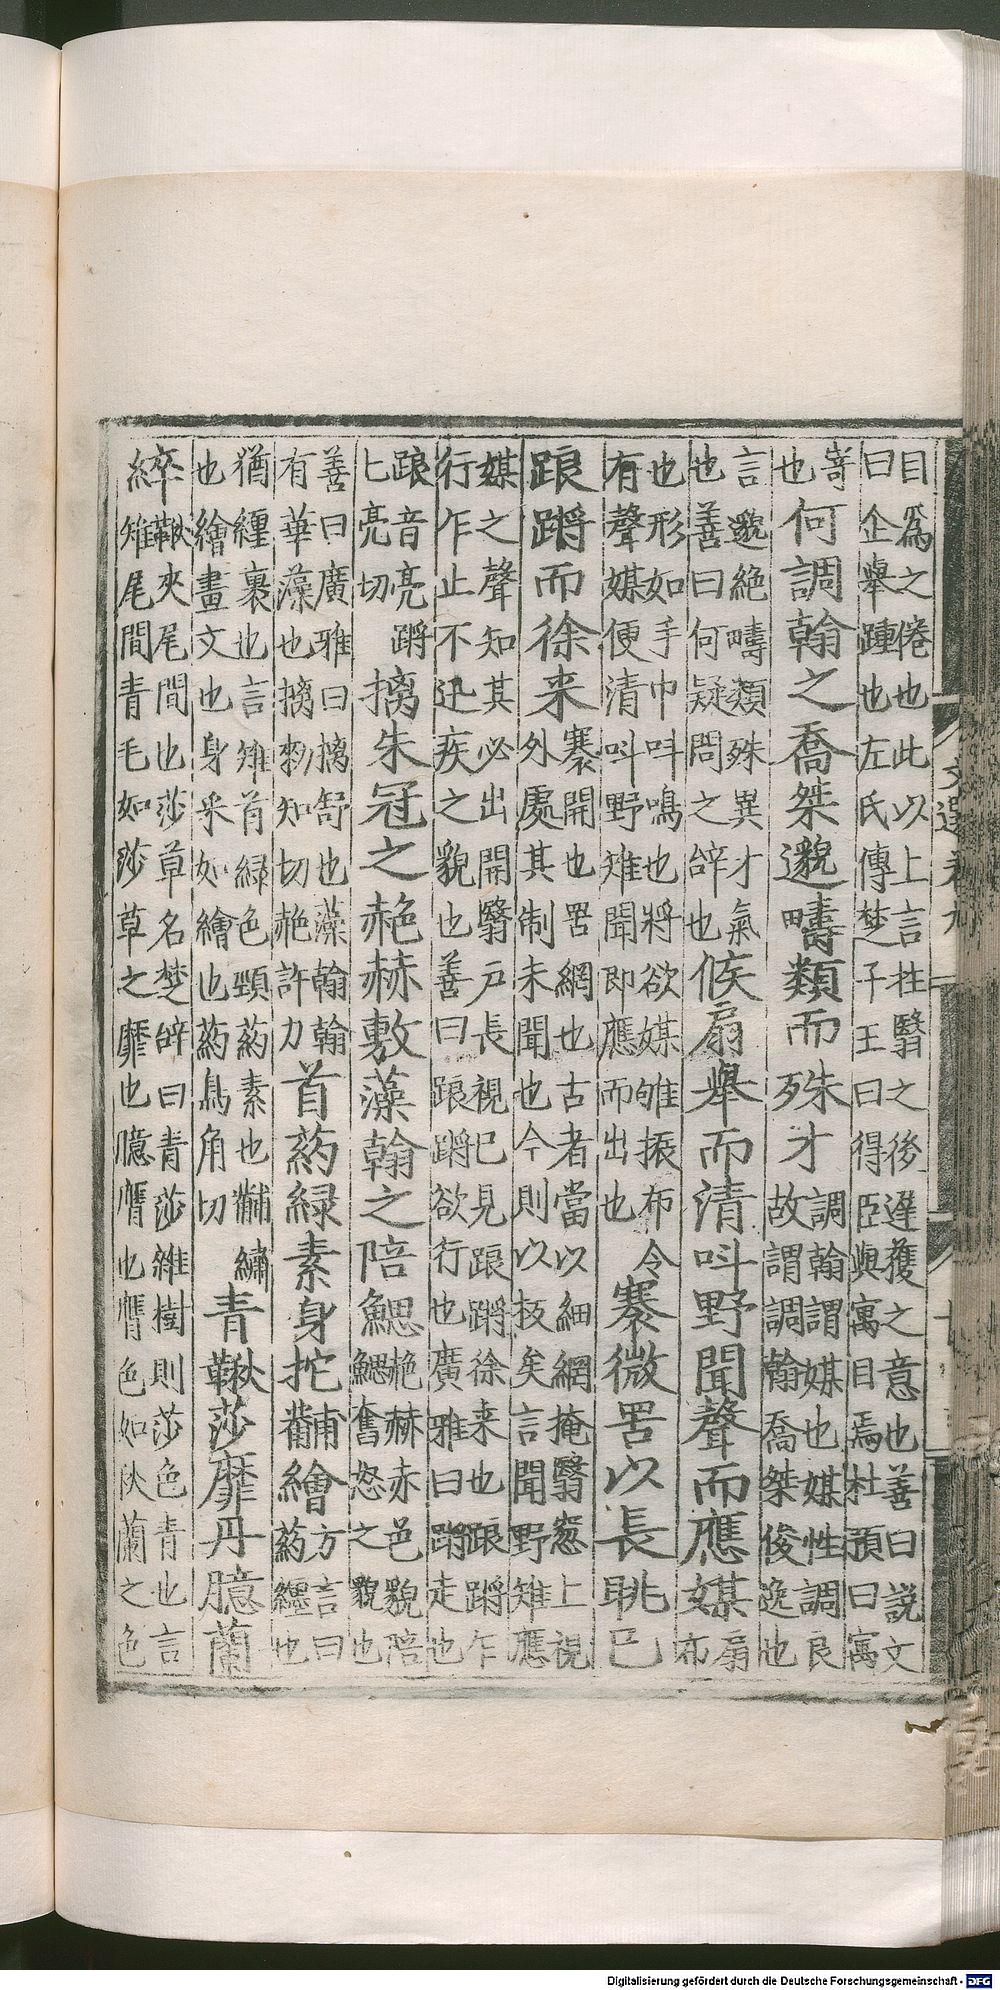 文選卷九
目爲之倦也此以上言拄翳之後遅獲之意也善曰說文
曰企舉踵也左氏傳楚子王曰得臣與寓目焉杜預曰寓
寄也何調翰之喬桀邈疇類而殊才調翰謂媒也媒性調良故謂調翰喬桀俊逸也
言邈絶疇類殊異才氣也善曰何疑問之辝也候扇舉而清呌野聞聲而應媒扇布
也形如手巾呌鳴也將欲媒雊振布令有聲媒便清呌野雉聞即應而出也褰微罟以長眺已
踉蹡而徐来褰開也罟網也古者當以細網掩翳窓上視外處其制未聞也今則以板矣言聞野雉應
媒之聲知其必出開翳户長視已見踉蹡徐来也踉蹡乍
行乍止不迅疾之貌也善曰踉蹡欲行也廣雅曰蹡走也
踉音亮蹡七亮切摛朱冠之赩赫敷藻翰之陪鰓赩赫赤色貌陪鰓奮怒之貌也
善曰廣雅曰摛舒也藻翰翰有華藻也摛勑知切赩許力首葯緑素身拕黼繪方言曰葯纒也
猶纒裹也言雉首緑色頸葯素也黼繡也繪畫文也身采如繪也葯烏角切青鞦莎靡丹臆蘭
綷鞦夾尾間也莎草名楚辝曰青莎雜樹則莎色青也言雉尾間青毛如莎草之靡也臆膺也膺色如秋蘭之色
Digitalisierung gefördert durch die Deutsche Forschungsgemeinschaft - DFG